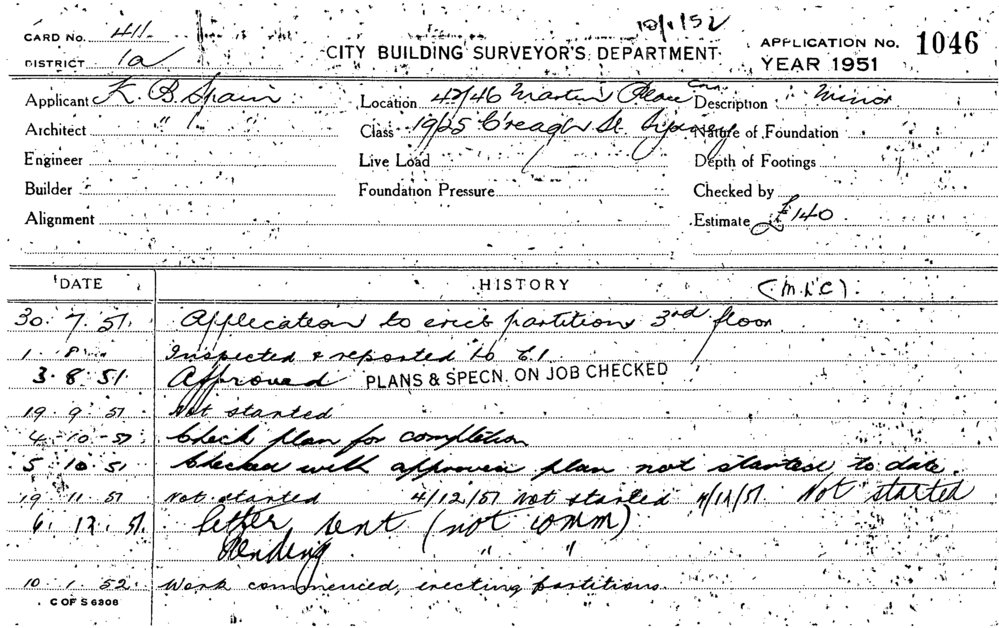 10/1/52
CARD No. 411.
CITY BUILDING SURVEYOR'S DEPARTMENT
APPLICATION No. 1046
DISTRICT 1a
YEAR 1951
Applicant K. B. Spain Location 42/46 Martin Place Cnr Description Minor
Architect " " Class 19/25 C'reagh St. Sydney Nature of Foundation
Engineer Live Load Depth of Footings
Builder Foundation Pressure Checked by
Alignment Estimate £140
DATE HISTORY (M.L.C).
30. 7. 51. Application to erect partitions 3rd floor
1. 8. " Inspected & reported to C.I.
3. 8. 51. Approved PLANS & SPECN. ON JOB CHECKED
19. 9. 51 Not started
4. 10. 51. Check plan for completion
5. 10. 51 Checked with approved plan not started to date.
19. 11. 51 Not started 4/12/51 Not started Not started
6. 12. 51. letter sent (not comm)
Pending " "
10. 1. 52 Work commenced, erecting partitions.
C OF S 6308